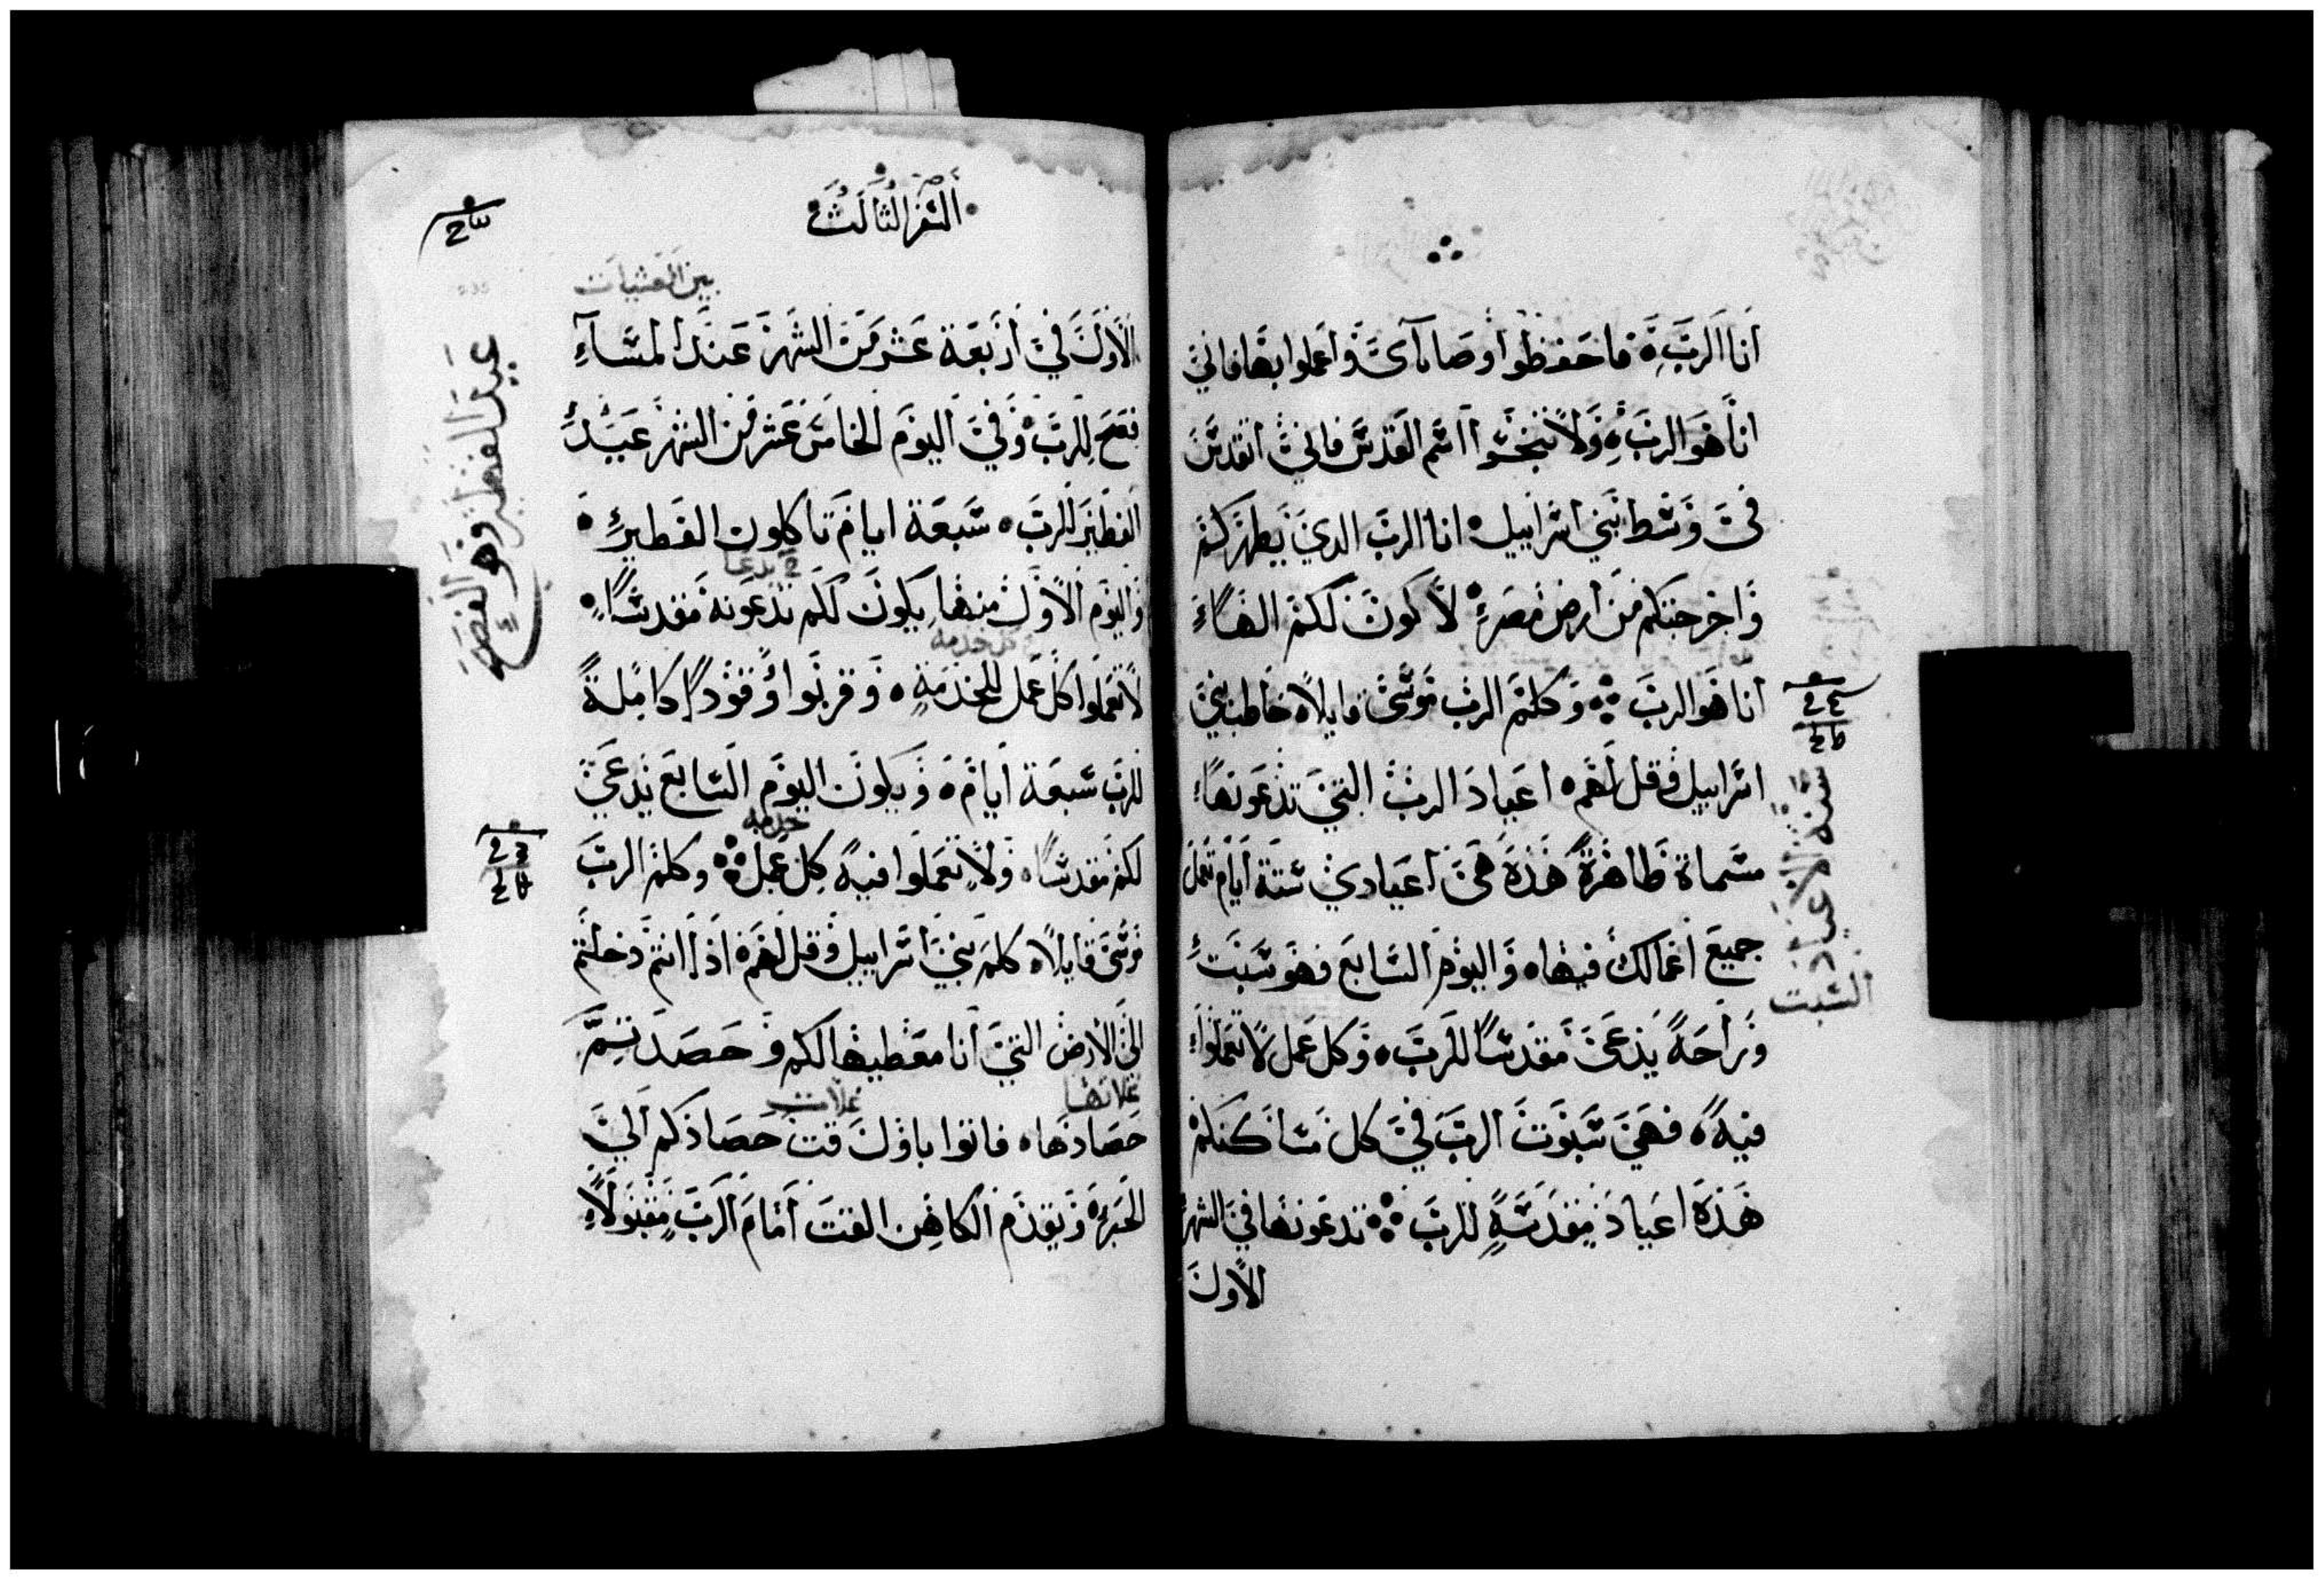 انا الرب فاحفظوا وصاياى واعملوا بها فاني
انا هو الرب ولا تنجسوا اسم القدس فاني اتقدس
فى وسط بني اسراييل انا الرب الدي يطهركم
واخرجتكم من ارض مصر لاكون لكم الها
انا هو الرب وكلم الرب موسى قايلا خاطب بني
اسراييل وقل لهم اعياد الرب التي تدعونها
مسماة طاهرة هذه هي اعيادي ستة ايام تعمل
جميع اعمالك فيها واليوم السابع فهو سبت
وراحة يدعى مقدسا للرب وكل عمل لا تعملوا
فيه فهي سبوت الرب في كل مساكنكم
هذه اعياد مقدسة للرب تدعونها في الشهر
الاول
سنة الاعياد
السبت
السفر الثالث
بين العشيات
الاول في اربعة عشر من الشهر عند المساء
فصح للرب وفي اليوم الخامس عشر من الشهر عيد
الفطير للرب سبعة ايام تاكلون الفطير
واليوم الاول منها يكون لكم تدعونه مقدسا
كل خدمه
لا تعملوا كل عمل للخدمة وقربوا وقودا كاملة
للرب سبعة ايام ويكون اليوم السابع يدعى
خدمه
لكم مقدسا ولا تعملوا فيه كل عمل وكلم الرب
موسى قايلا كلم بني اسراييل وقل لهم اذا انتم دخلتم
الى الارض التي انا معطيها لكم وحصدتم
غلاتها غلات
حصادها فاتوا باول قت حصادكم الي
الحبر ويقدم الكاهن القت امام الرب مقبولا
عيد الفطير وهو الفصح